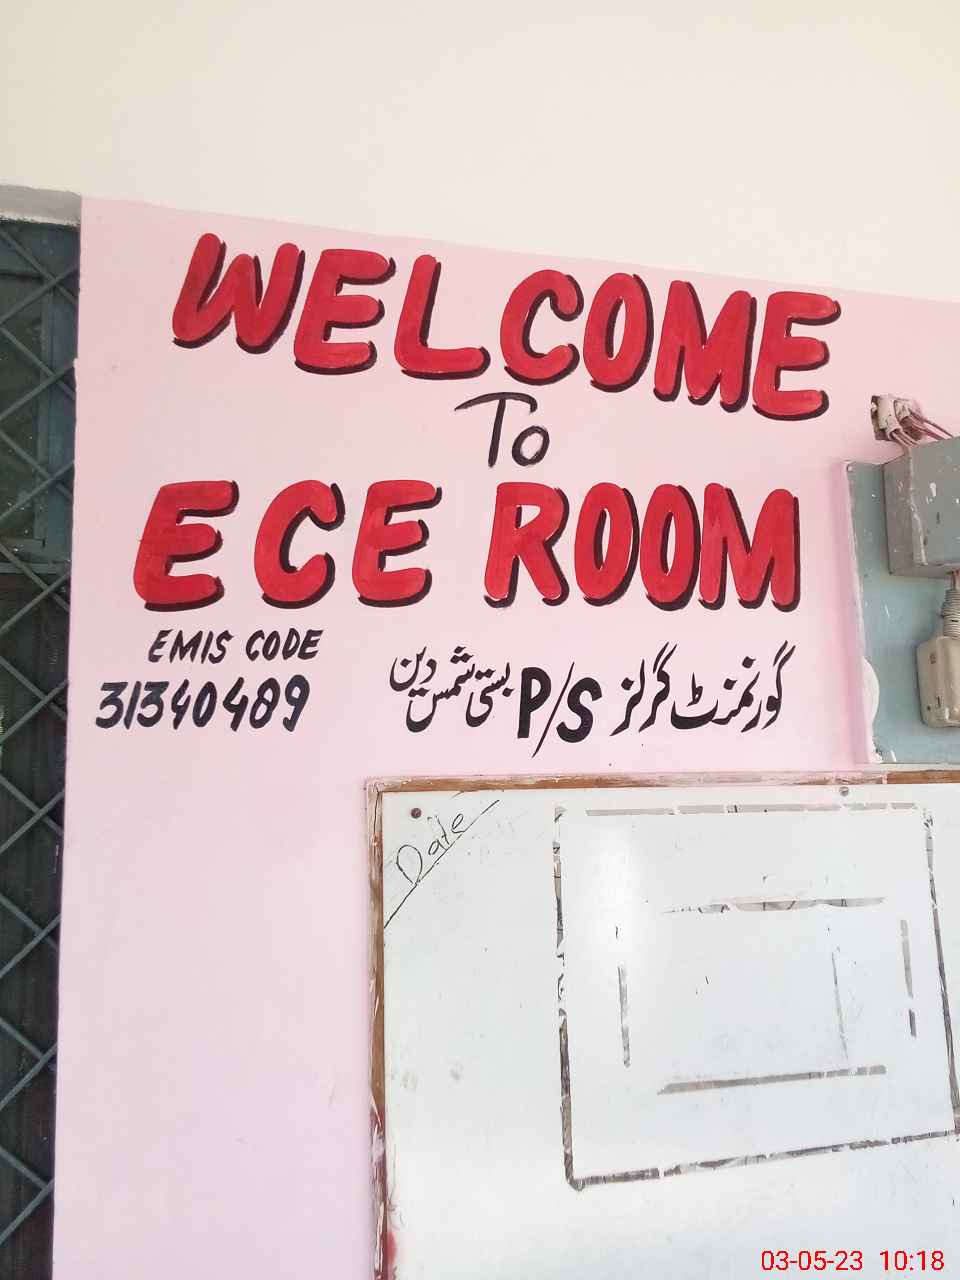 WELCOME
To
ECE ROOM
EMIS CODE
31340489
گورنمنٹ گرلز P/S بستی شمس دین
Date
03-05-23 10:18